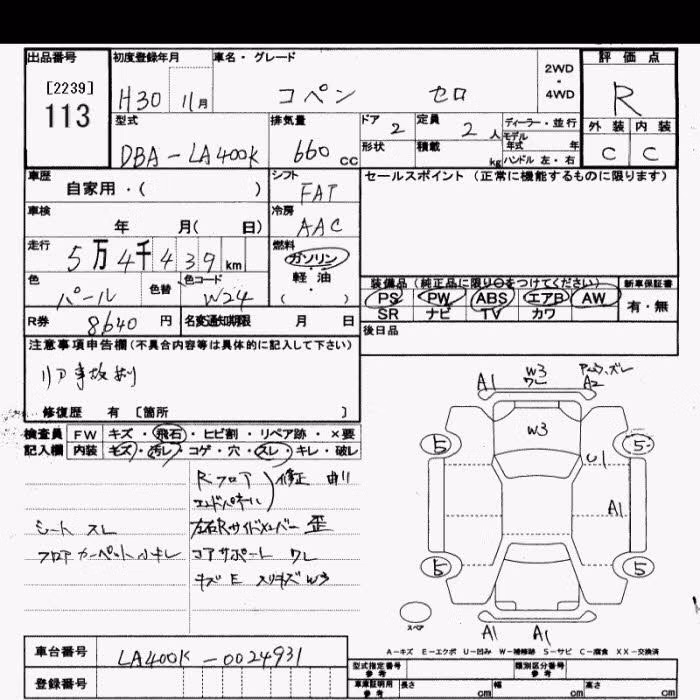 出品番号 初度登録年月 車名・グレード 評価点
[2239] 113 H30 11月 コペン セロ 2WD・4WD R
型式 排気量 ドア 2 定員 2人 ディーラー・並行 外装 内装
DBA-LA400K 660cc 形状 積載 kg モデル年式 年 ハンドル 左・右 C C
車歴 自家用・( ) シフト FAT セールスポイント(正常に機能するものに限ります)
車検 年 月( 日) 冷房 AAC
走行 5万4千439km 燃料 ガソリン 軽・油 ・( )
色 パール 色替 色コード W24 装備品(純正品に限り○をつけてください) 新車保証書
PS PW ABS エアB AW 有・無
SR ナビ TV カワ
R券 8640円 名変通知期限 月 日 後日品
注意事項申告欄(不具合内容等は具体的に記入して下さい)
リア事故あり
修復歴 有 [箇所 ]
検査員 FW キズ・飛石・ヒビ割・リペア跡・×要
記入欄 内装 キズ・汚レ・コゲ・穴・スレ・キレ・破レ
Rフロア 修正 曲り
エンドパネル
シート スレ 左右Rサイドメンバー 歪
フロアカーペット小キレ コアサポート ワレ
キズE スリキズW3
A1 W3 ワレ A2 ズレ
W3
5 5
U1
A1
5 5
スペア
A1 A1
A-キズ E-エクボ U-凹み W-補修跡 S-サビ C-腐食 XX-交換済
車台番号 LA400K-0024931
登録番号
型式指定番号 参考 類別区分番号 参考
車庫証明用 参考 長さ cm 幅 cm 高さ cm